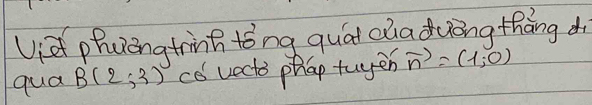 Viết phương trình tổng quát của đường thẳng đi
qua B(2;3) có vectơ pháp tuyến n⃗ = (1;0)